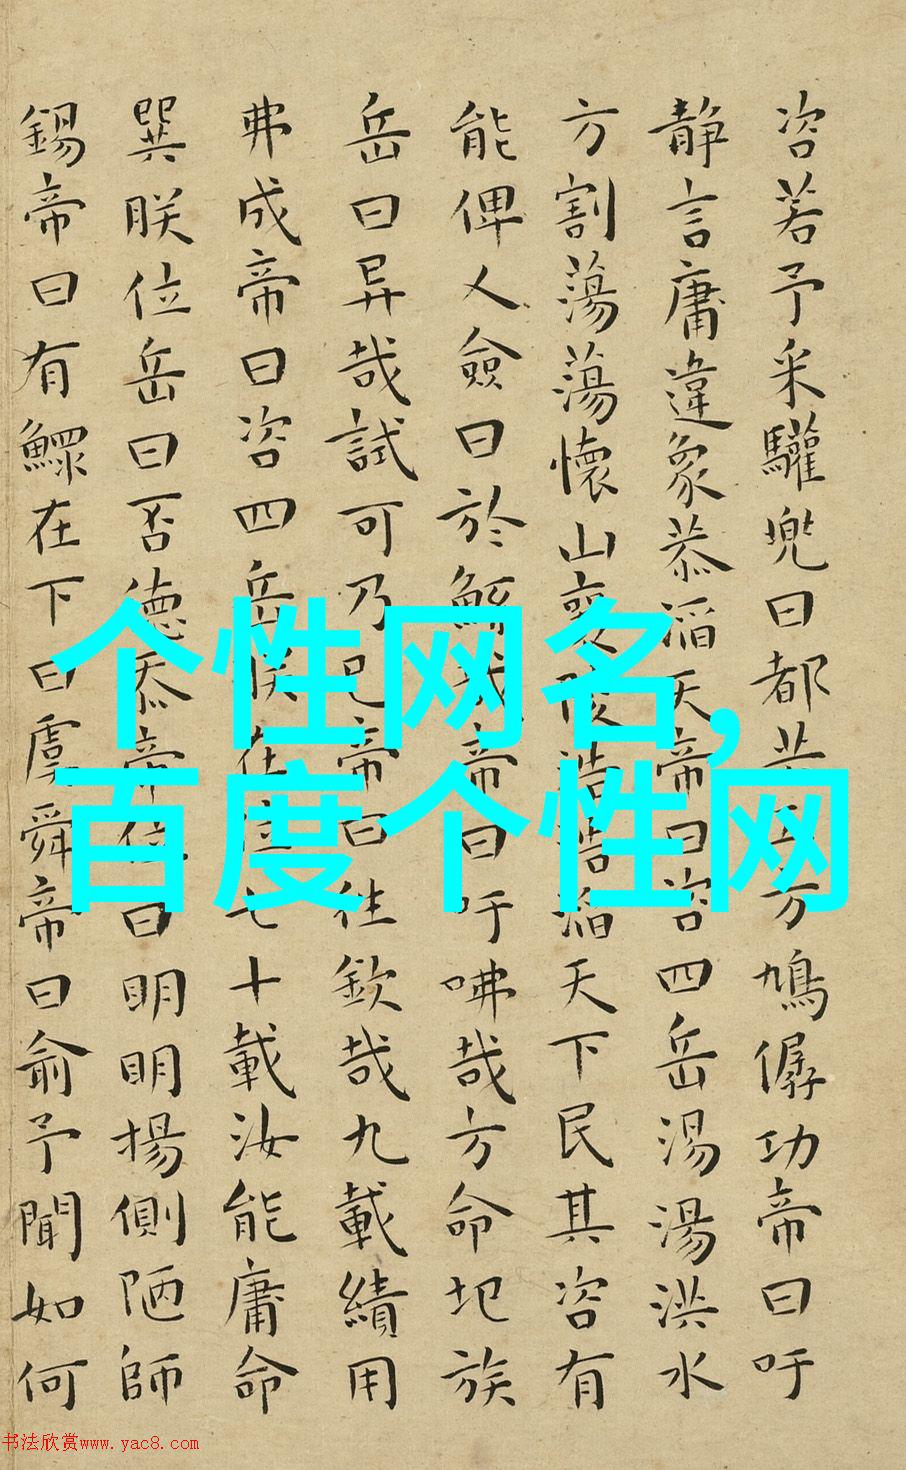 咨若予采驩兜曰都方鳩僝功帝曰吁
静言庸違象恭滔天帝曰咨四岳湯湯洪水
方割蕩蕩懷山襄陵浩浩滔天下民其咨有
能俾乂僉曰於鯀哉帝曰吁咈哉方命圮族
岳曰异哉試可乃已帝曰往欽哉九載績用
弗成帝曰咨四岳朕在位七十載汝能庸命
巽朕位岳曰否德忝帝位曰明明揚側陋師
錫帝曰有鰥在下曰虞舜帝曰俞予聞如何
个性网名,
百度个性网
书法欣赏www.yac8.com